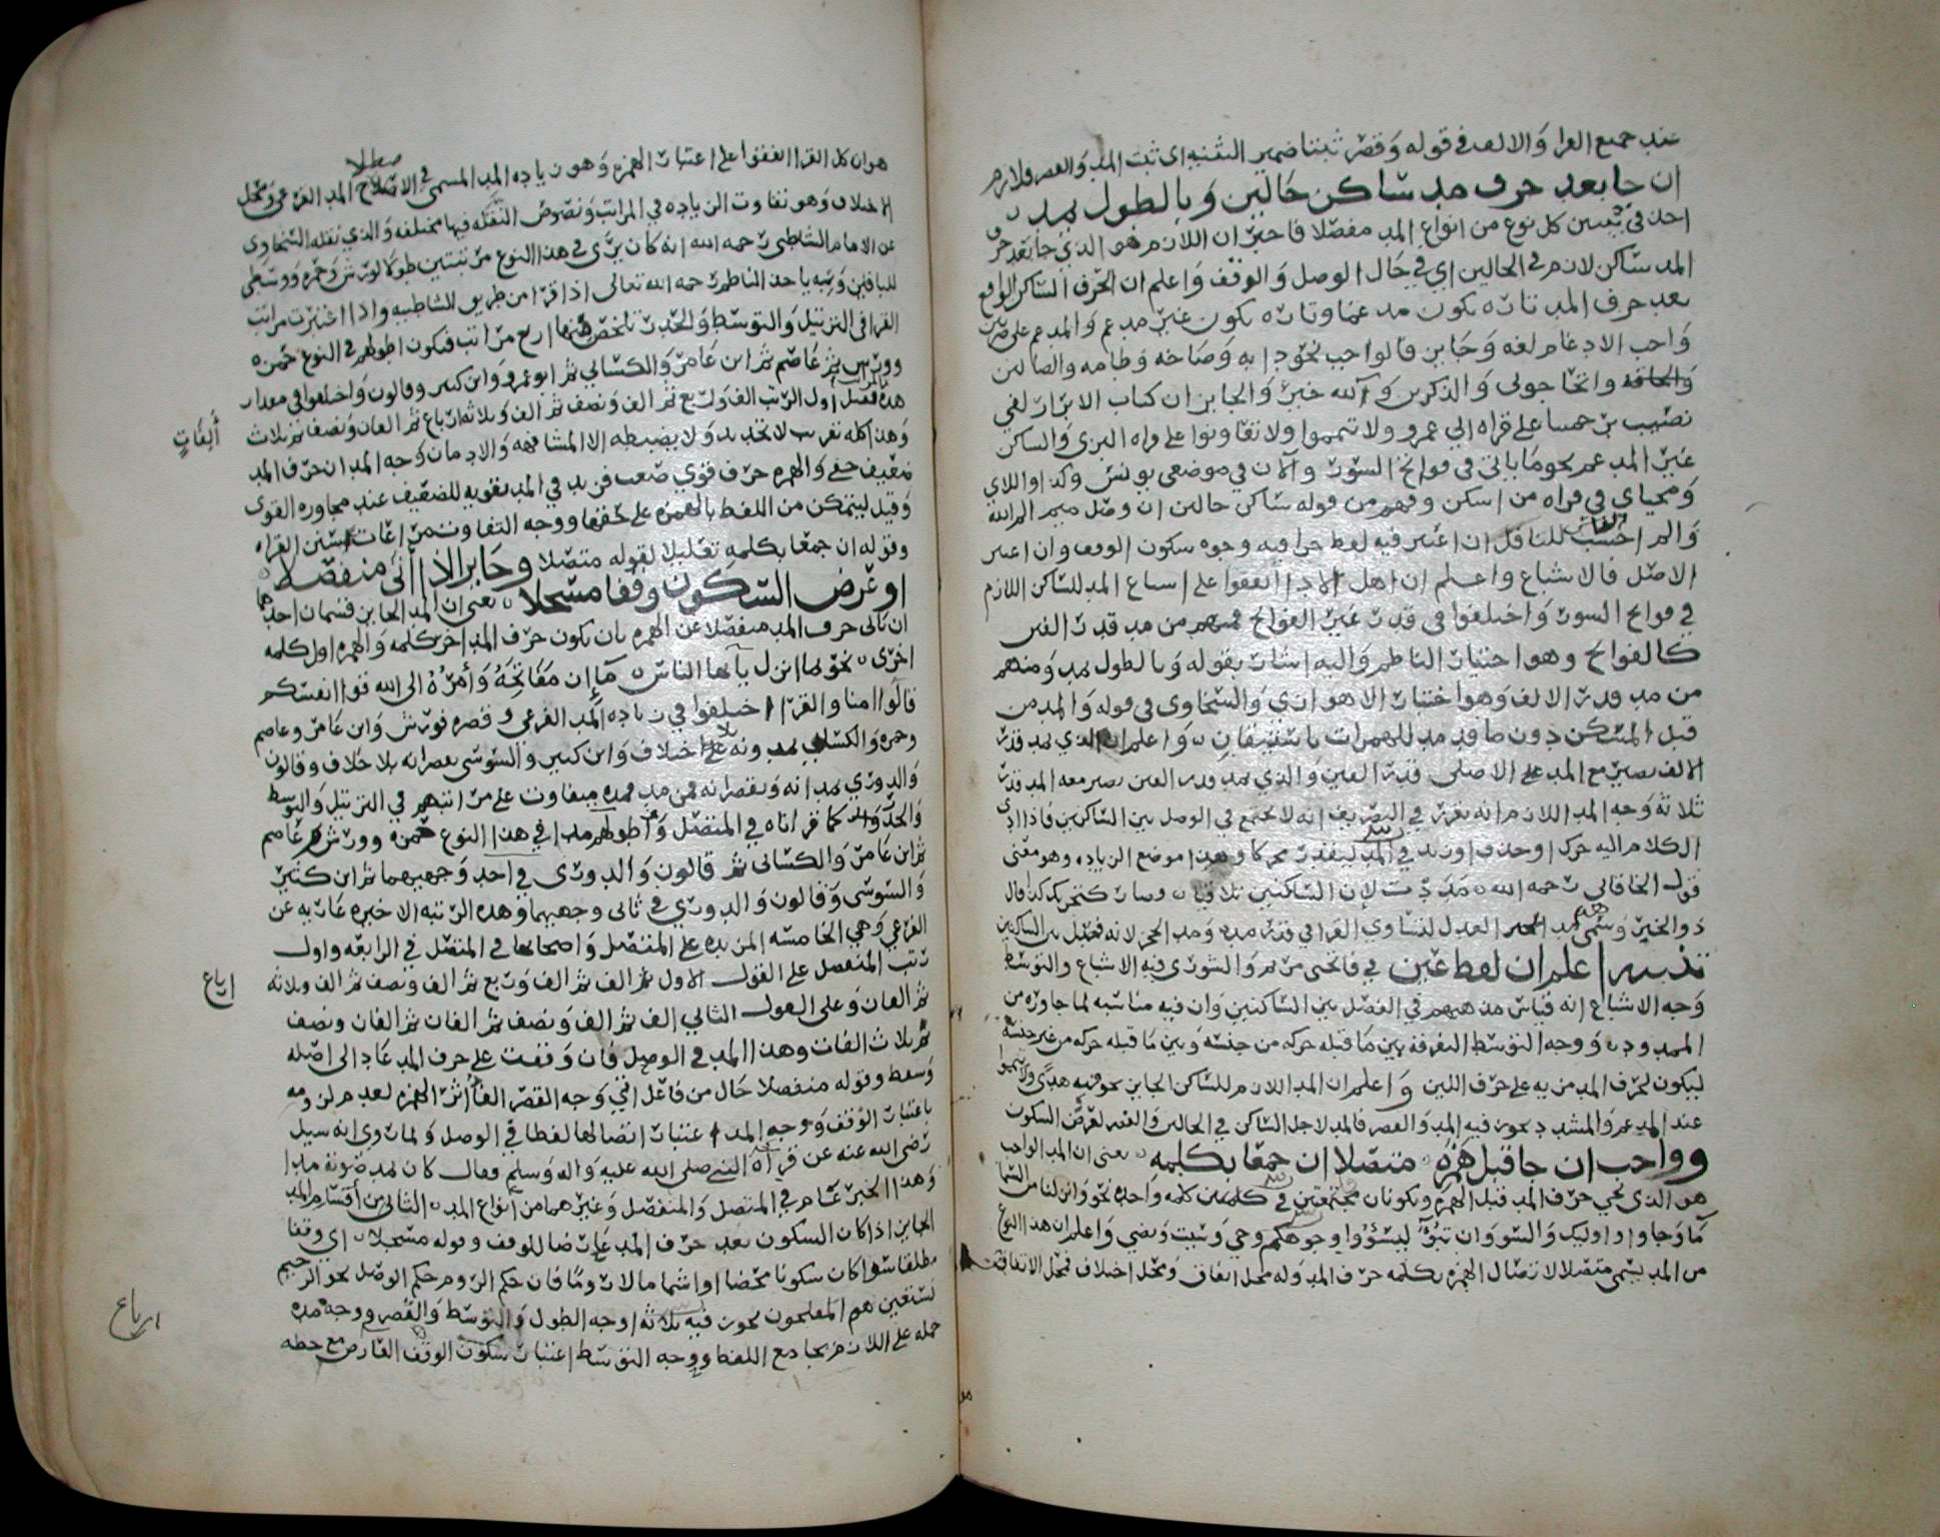 عند جميع القرا والالف في قوله وقصر ثبتا ضمير التثنيه اى ثبت المد والقصر فلازم
ان جا بعد حرف مد ساكن حالين وبالطول يمد
احد في تبيين كل نوع من انواع المد مفصلا فاخبر ان اللازم هو الذي جا بعد حرف
المد ساكن لازم في الحالين اي في حال الوصل والوقف واعلم ان الحرف الساكن الواقع
بعد حرف المد تاره يكون مدغما وتاره يكون غير مدغم والمدغم على ضربين
واجب الادغام لغه وجايز فالواجب نحو دابه وصاخه وطامه والضالين
والحاقه واتحاجوني والذكرين و آلله خير والجايز ان كتاب الابرار لفي
نصيب برحمتنا على قراه ابي عمرو ولا تيمموا ولا تعاونوا على قراه البزي والساكن
غير المدغم نحو ما ياتي في فواتح السور و آلان في موضعي يونس وكذا واللاي
ومحياي في قراه من اسكن وفهم من قوله ساكن حالين ان وصل ميم الم الله
والم احسب للناقل ان اعتبر فيه لفظ جرا فيه وجوه سكون الوقف وان اعتبر
الاصل فالاشباع واعلم ان اهل الادا اتفقوا على اشباع المد للساكن اللازم
في فواتح السور واختلفوا في قدر غير الفواتح فمنهم من مد قدر الفين
كالفواتح وهو اختيار الناظم واليه اشار بقوله وبالطول يمد ومنهم
من مد قدر الالف وهو اختيار الاهوازي والسخاوي في قوله والمد من
قبل المسكن دون ما قد مد للهمزات باستيقان واعلم ان الذي يمد قدر
الالف يصير مع المد على الاصلي قدر الفين والذي يمد قدر الفين يصير معه المد قدر
ثلاثة وجه المد اللازم انه تقرر في التصريف انه لا يجمع في الوصل بين الساكنين فاذا ادى
الكلام اليه حرك او حذف او زيد في المد ليقدر محركا وهذا موضع الزياده وهو معنى
قول الخاقاني رحمه الله مددت لان الساكنين تلاقيا وصار كتحريك كذا قال
ذو الخبر وسمي مد العدل لتساوي القرا في قدر مده ومد الحجز لانه فصل بين الساكنين
تنبيه اعلم ان لفظ عين في فاتحتي مريم والشورى فيه الاشباع والتوسط
وجه الاشباع انه قياس مذهبهم في الفصل بين الساكنين وان فيه مناسبه لما جاوره من
الممدود ووجه التوسط التفرقه بين ما قبله حركه من جنسه وبين ما قبله حركه من غير جنسه
ليكون لحرف المد مزيه على حرف اللين واعلم ان المد اللازم للساكن الجايز نحو فيه هدى ولا تيمموا
عند المدغم والمشدد يجوز فيه المد والقصر فالمد لاجل الساكن في الحالين والقصر لعرض السكون
وواجب ان جا قبل همزة متصلا ان جمعا بكلمه يعنى ان المد الواجب
هو الذي يجي حرف المد قبل الهمزه ويكونان مجتمعين في كلمه واحده نحو وانزلنا من السما
ما وجاوا واوليك والسو وان تبوا ليسؤوا وجوهكم وجي وسيت ويضي واعلم ان هذا النوع
من المد يسمى متصلا لاتصال الهمزه بكلمه حرف المد وله محل اتفاق ومحل اختلاف فمحل الاتفاق
هو ان كل القرا اتفقوا على اعتبار الهمزه وهو زياده المد المسمى في الاصطلاح المد الفرعى ومحل
الاختلاف وهو تفاوت الزياده في المراتب ونصوص النقله فيها مختلفه والذي نقله السخاوي
عن الامام الشاطبي رحمه الله انه كان يرى في هذا النوع مرتبتين طولا لورش وحمزه ووسطى
للباقين وبه ياخذ الناظم رحمه الله تعالى اذا قرا من طريق الشاطبيه واذا اعتبرت مراتب
القرا في الترتيل والتوسط والحدر تلخص منها اربع مراتب فيكون اطولهم في النوع حمزه
وورش ثم عاصم ثم ابن عامر والكسائي ثم ابو عمرو وابن كثير وقالون واختلفوا في مقدار
هذه المراتب فقيل اول الرتب الف وربع ثم الف ونصف ثم الف وثلاثة ارباع ثم الفان ونصف ثم ثلاث
ألفات
وهذا كله تقريب لا تحديد ولا يضبطه الا المشافهه والادمان وجه المد ان حرف المد
ضعيف خفي والهمزه حرف قوي صعب فزيد في المد تقويه للضعيف عند مجاوره القوى
وقيل ليتمكن من اللفظ بالهمزه على حقها ووجه التفاوت مراعات سنن القراه
وقوله ان جمعا بكلمه تعليلا لقوله متصلا وجايز اذا أتى منفصلا
او عرض السكون وقفا مسجلا يعني ان المد الجايز قسمان احدهما
ان ياتي حرف المد منفصلا عن الهمزه بان يكون حرف المد اخر كلمه والهمزه اول كلمه
اخرى نحو بما انزل يآ ايها الناس مآ إن مفاتحه وأمره الى الله قوا انفسكم
قالوا امنا والقرا اختلفوا في زياده المد الفرعي وقصره فورش وابن عامر وعاصم
وحمزه والكسائي يمدونه بلا اختلاف وابن كثير والسوسى يقصرانه بلا خلاف وقالون
والدوري يمدانه ويقصرانه فمن مد فمده متفاوت على مراتبهم في الترتيل والتوسط
والحدر كما قررناه في المتصل واطولهم مدا في هذا النوع حمزه وورش ثم عاصم
ثم ابن عامر والكسائى ثم قالون والدورى في احد وجهيهما ثم ابن كثير
والسوسى وقالون والدوري في ثاني وجهيهما وهذه الرتبه الاخيره عاريه عن
الفرعي وهي الخامسه المزيده على المتصل واصحابها في المتصل في الرابعه واول
رتب المنفصل على القول الاول الف ثم الف وربع ثم الف ونصف ثم الف وثلاثه
ارباع
ثم الفان وعلى القول الثاني الف ثم الف ونصف ثم الفان ثم الفان ونصف
ثم ثلاث الفات وهذا المد في الوصل فان وقفت على حرف المد عاد الى اصله
وسقط وقوله منفصلا حال من فاعل اتى وجه القصر الغا اثر الهمزه لعدم لزومه
باعتبار الوقف ووجه المد اعتبار اتصالها لفظا في الوصل ولما روي انه سيل
رضي الله عنه عن قراه النبي صلى الله عليه واله وسلم فقال كان يمد صوته مدا
وهذا الخبر عام في المتصل والمنفصل وغيرهما من انواع المد الثاني من أقسام المد
الجايز اذا كان السكون بعد حرف المد عارضا للوقف وقوله مسجلا اي وقفا
مطلقا سوا كان سكونا محضا او اشماما لا روما فان حكم الروم حكم الوصل نحو الرحيم
نستعين هم المفلحون يجوز فيه ثلاثة اوجه الطول والتوسط والقصر ووجه مده
حمله على اللازم بجامع اللفظ ووجه التوسط اعتبار سكون الوقف العارض مع حطه
ارباع